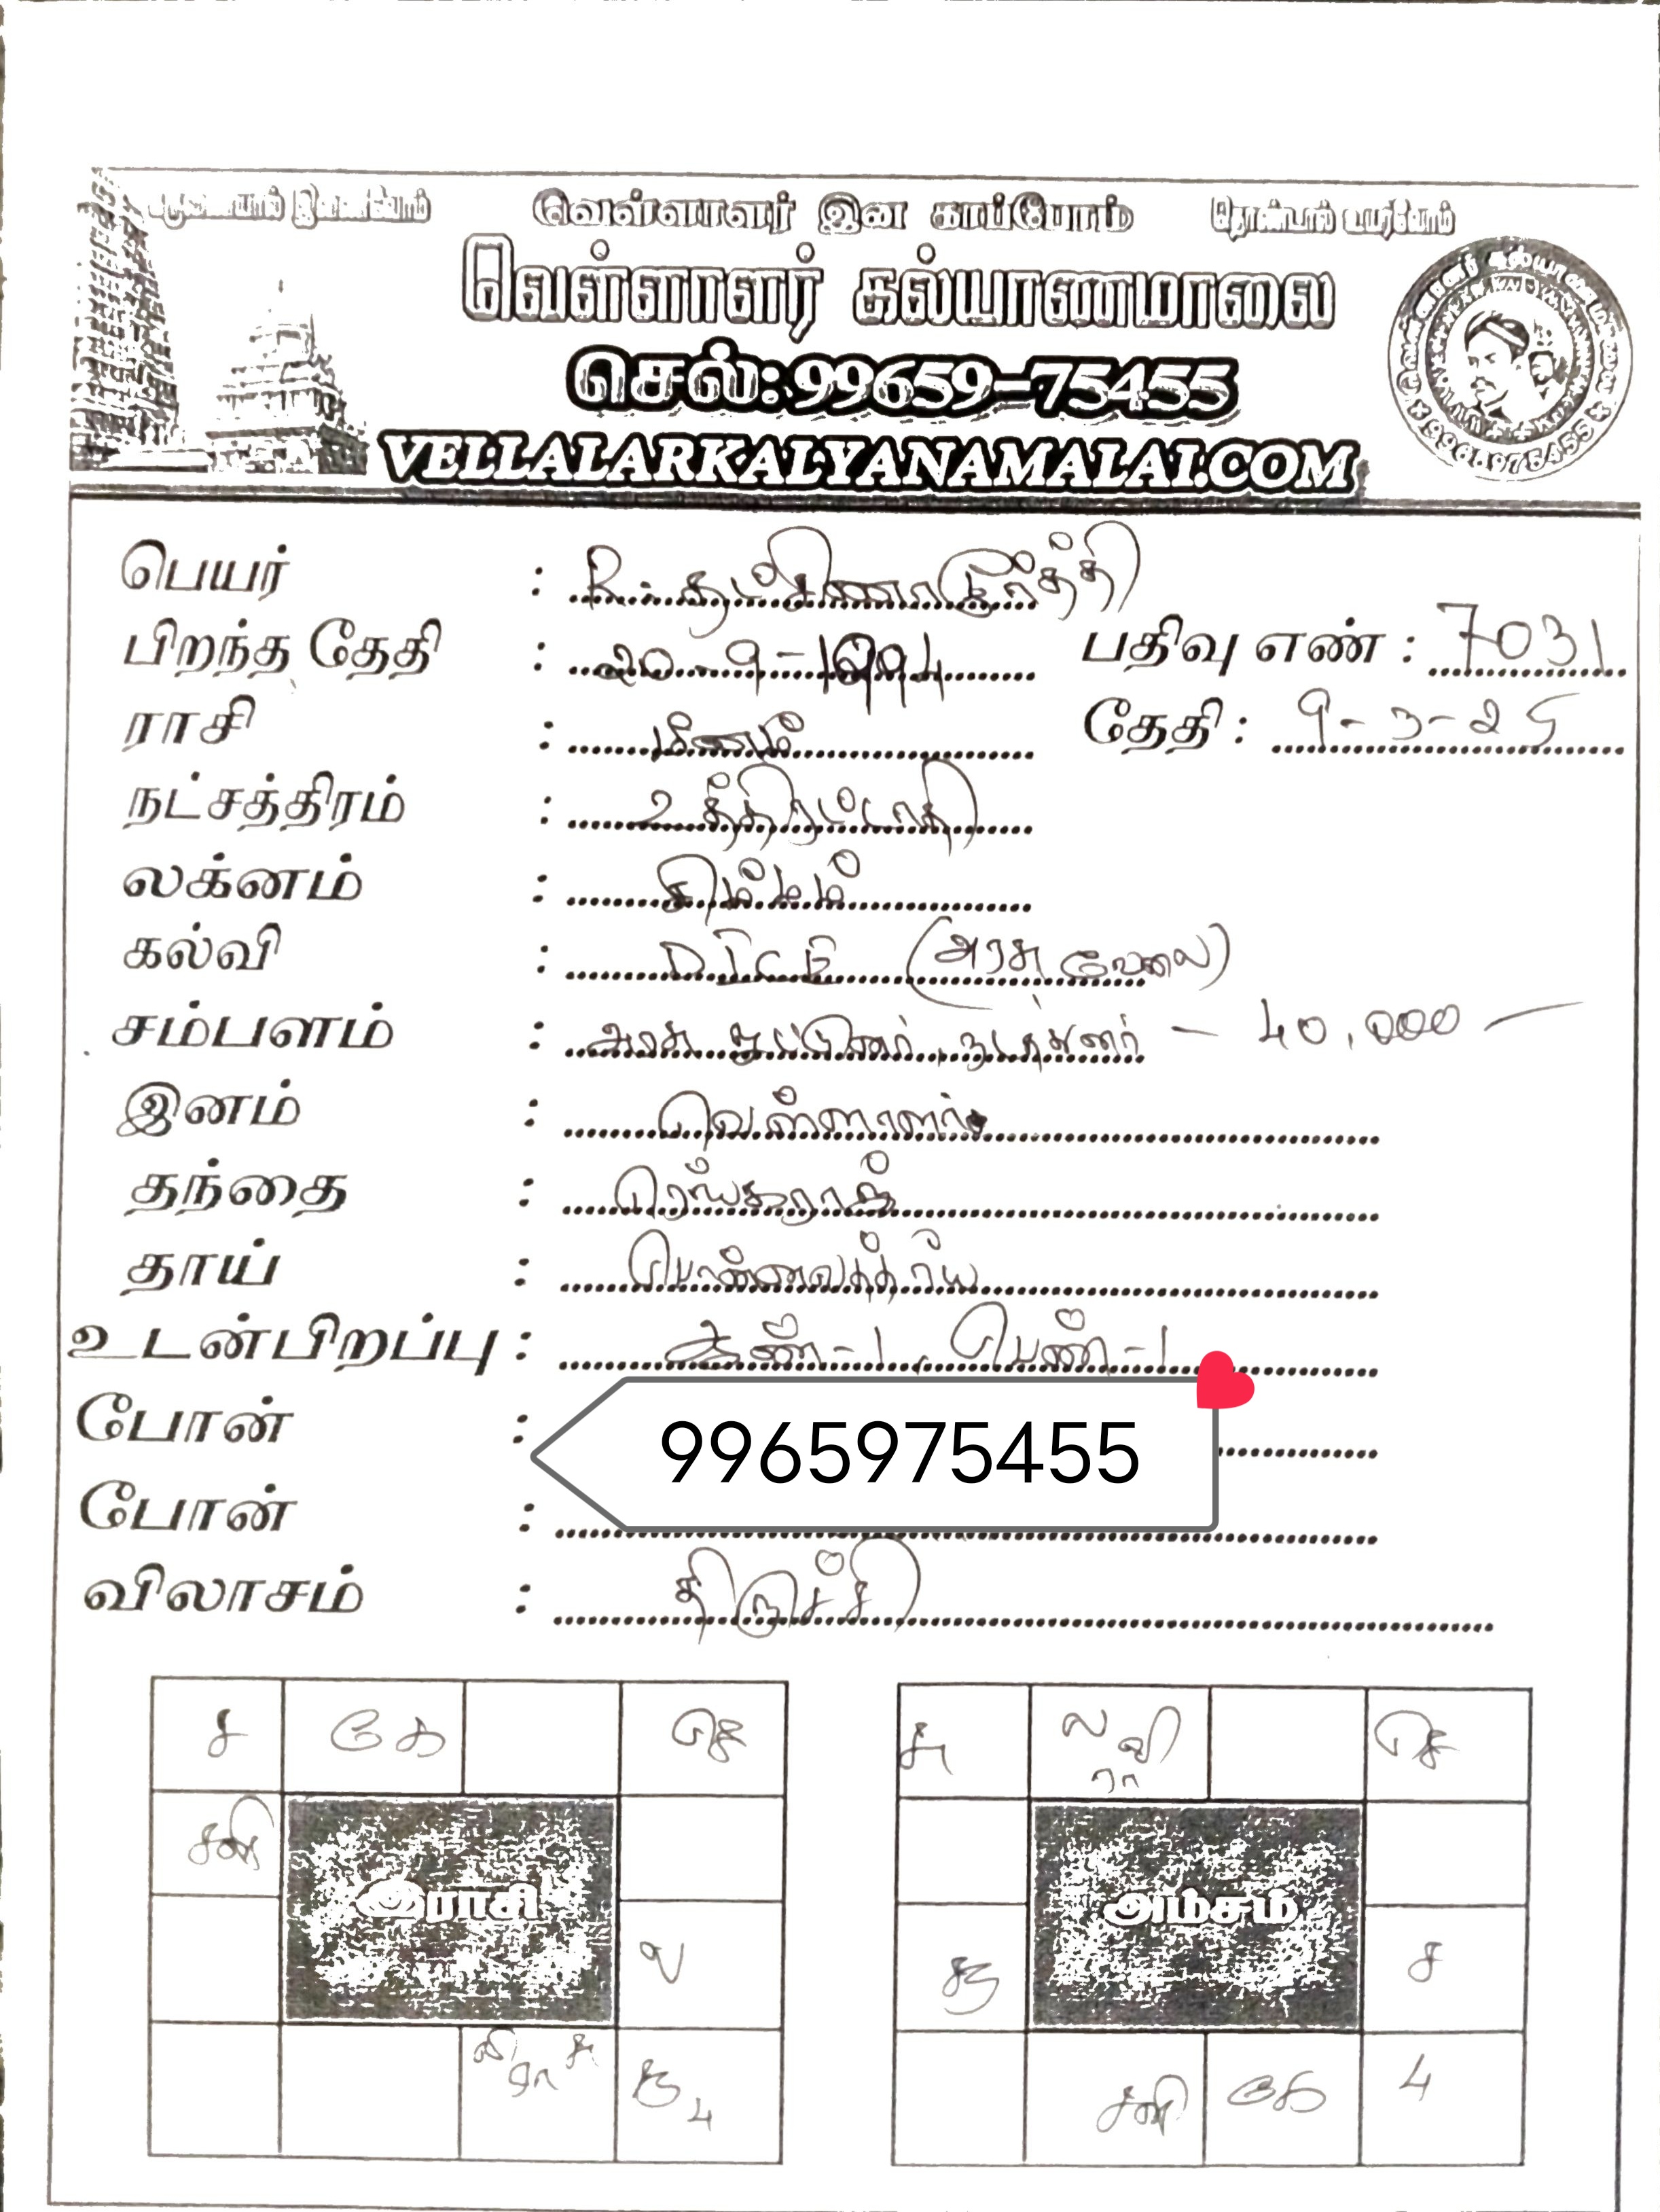 வெள்ளாளர் இன காப்போம்
வெள்ளாளர் கல்யாணமாலை
செல்: 99659-75455
VELLALARKALYANAMALAI.COM
பெயர் : R. தட்சிணாமூர்த்தி
பிறந்த தேதி : 20-9-1994 பதிவு எண் : 7031
ராசி : மீனம் தேதி : 9-3-25
நட்சத்திரம் : உத்திரட்டாதி
லக்னம் : சிம்மம்
கல்வி : DICE (அரசு வேலை)
சம்பளம் : அரசு ஓட்டுனர், நடத்துனர் - 40,000
இனம் : வெள்ளாளர்
தந்தை : ரெங்கராஜ்
தாய் :
உடன்பிறப்பு : ஆண்-1, பெண்-1
போன் : 9965975455
போன் :
விலாசம் : திருச்சி
ச கே செ சு ல வி ரா செ
சனி
இராசி அம்சம்
ல கு ச
வி ரா சு கு பு சனி கே பு